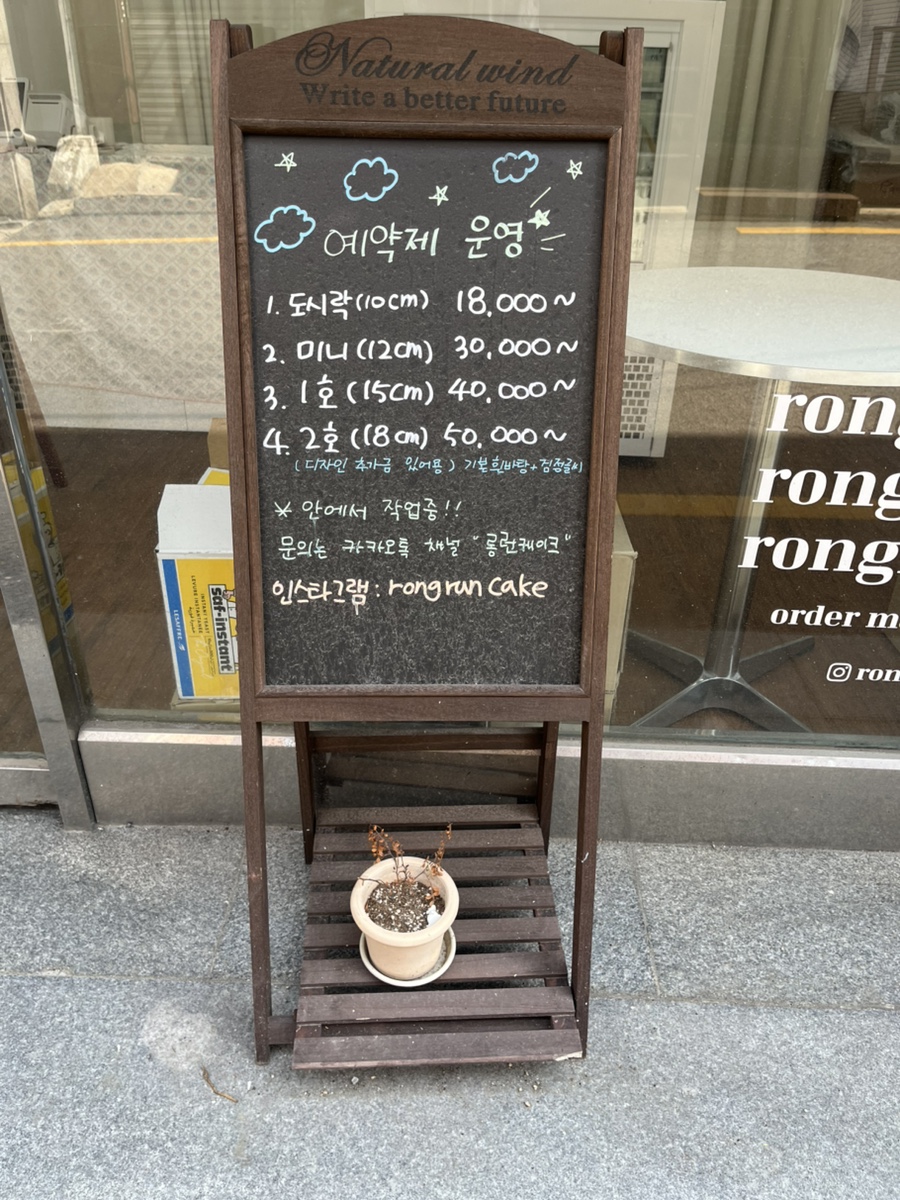 Natural wind
Write a better future
예약제 운영
1. 도시락(10cm) 18,000~
2. 미니(12cm) 30,000~
3. 1호(15cm) 40,000~
4. 2호(18cm) 50,000~
(디자인 추가금 있어용) 기본흰바탕+검정글씨
* 안에서 작업중!!
문의는 카카오톡 채널 "롱런케이크"
인스타그램: rongrun cake
rong
rong
rong
order m
ron
saf-instant
INSTANT YEAST
LEVURE INSTANTANÉE
LESAFFRE